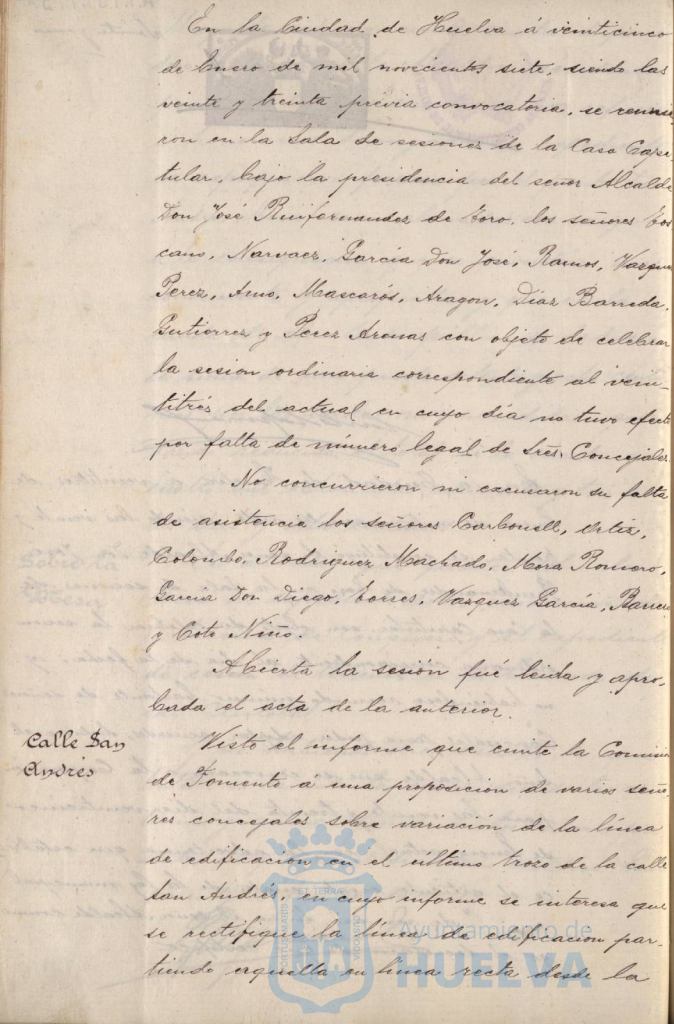 En la Ciudad de Huelva á veinticinco
de Enero de mil novecientos siete, siendo las
veinte y treinta prévia convocatoria, se reunie
ron en la Sala de sesiones de la Casa Capi-
tular, bajo la presidencia del señor Alcalde
Don José Ruifernandez de Toro, los señores Tos
cano, Narvaez, García Don José, Ramos, Vazquez
Perez, Amo, Mascarós, Aragon, Diaz Barreda,
Gutierrez y Perez Arenas con objeto de celebrar
la sesion ordinaria correspondiente al vein-
titrés del actual en cuyo día no tuvo efecto
por falta de número legal de Sres. Concejales.
No concurrieron ni excusaron su falta
de asistencia los señores Carbonell, Ortiz,
Colombo, Rodriguez Machado, Mora Romero,
García Don Diego, Torres, Vazquez García, Barrera
y Coto Niño.
Abierta la sesión fué leida y apro-
bada el acta de la anterior.
Calle San
Andrés
Visto el informe que emite la Comision
de Fomento á una proposicion de varios seño-
res concejales sobre variación de la línea
de edificacion en el último trozo de la calle
San Andrés, en cuyo informe se interesa que
se rectifique la línea de edificacion par-
tiendo aquella en línea recta desde la
Ayuntamiento de
HUELVA